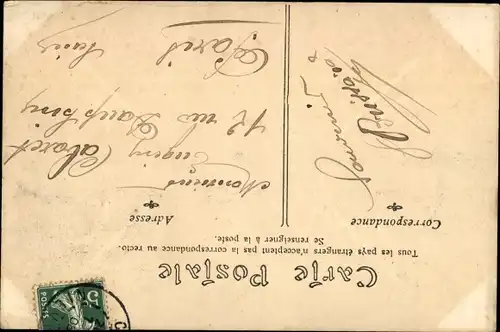 Carte Postale
Tous les pays étrangers n'acceptent pas la correspondance au recto.
Se renseigner à la poste.
Correspondance
Adresse
Souvenir
Monsieur
Eugène Cabaret
12 rue Dauphine
Paris
5c
POSTES